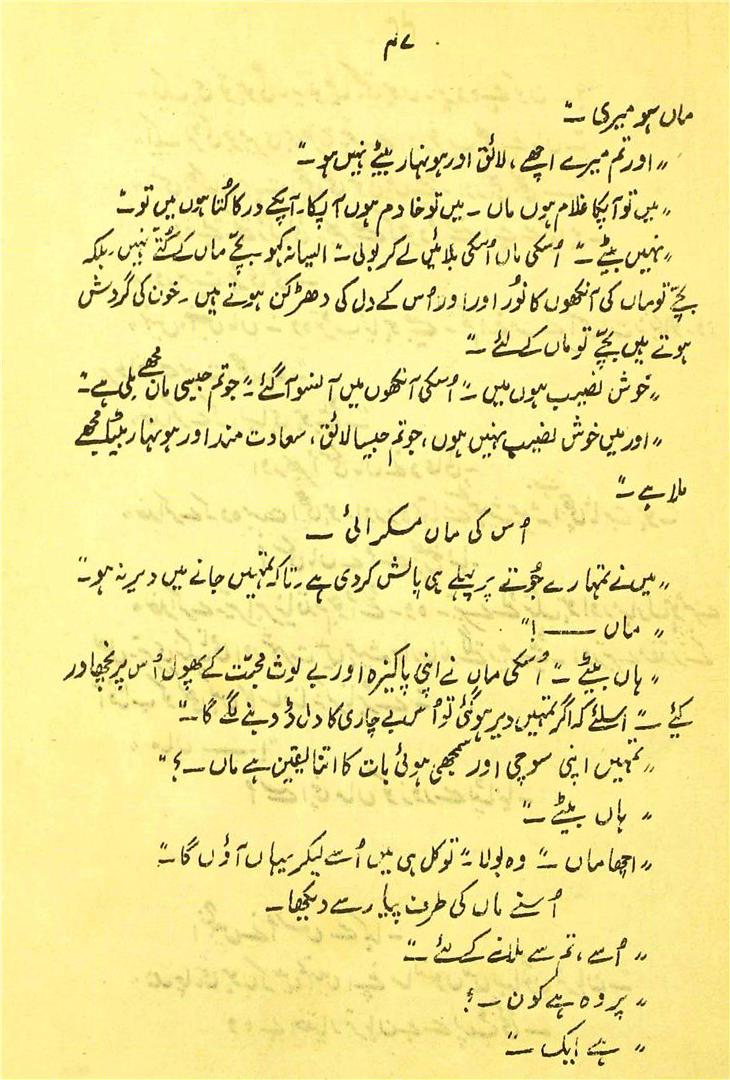 ۴۷
ماں ہو میری ۔"
"اور تم میرے اچھے، لائق اور ہونہار بیٹے نہیں ہو۔"
"میں تو آپکا غلام ہوں ماں ۔ میں تو خادم ہوں آپکا۔ آپکے در کا کُتا ہوں میں تو۔"
"نہیں بیٹے ۔" اُسکی ماں اُسکی بلائیں لے کر بولی۔" ایسا نہ کہو بچّے ماں کے کُتّے نہیں۔ بلکہ
بچّے تو ماں کی آنکھوں کا نُور اور اور اُس کے دل کی دھڑکن ہوتے ہیں ۔ خون کی گردش
ہوتے ہیں بچّے تو ماں کے لئے ۔"
"خوش نصیب ہوں میں ۔" اُسکی آنکھوں میں آنسو آگئے ۔" جو تم جیسی ماں مجھے ملی ہے۔"
"اور میں خوش نصیب نہیں ہوں، جو تم جیسا لائق، سعادت مند اور ہونہار بیٹا مجھے
ملا ہے ۔"
اُس کی ماں مسکرائی ۔
"میں نے تمہارے جُوتے پر پہلے ہی پالش کردی ہے ۔ تاکہ تمہیں جانے میں دیر نہ ہو۔"
"ماں ——!"
"ہاں بیٹے ۔" اُسکی ماں نے اپنی پاکیزہ اور بے لوث محبّت کے پھول اُس پر نچھاور
کیے ۔" اسلئے کہ اگر تمہیں دیر ہوگئی تو اُس بے چاری کا دل ڈوبنے لگے گا۔"
"تمہیں اپنی سوچی اور سمجھی ہوئی بات کا اتنا یقین ہے ماں ۔؟"
"ہاں بیٹے ۔"
"اچھا ماں ۔" وہ بولا ۔" تو کل ہی میں اُسے لیکر یہاں آؤں گا۔"
اُسنے ماں کی طرف پیار سے دیکھا۔
"اُسے، تم سے ملانے کے لئے ۔"
"پر وہ ہے کون ۔؟
"ہے ایک ۔"